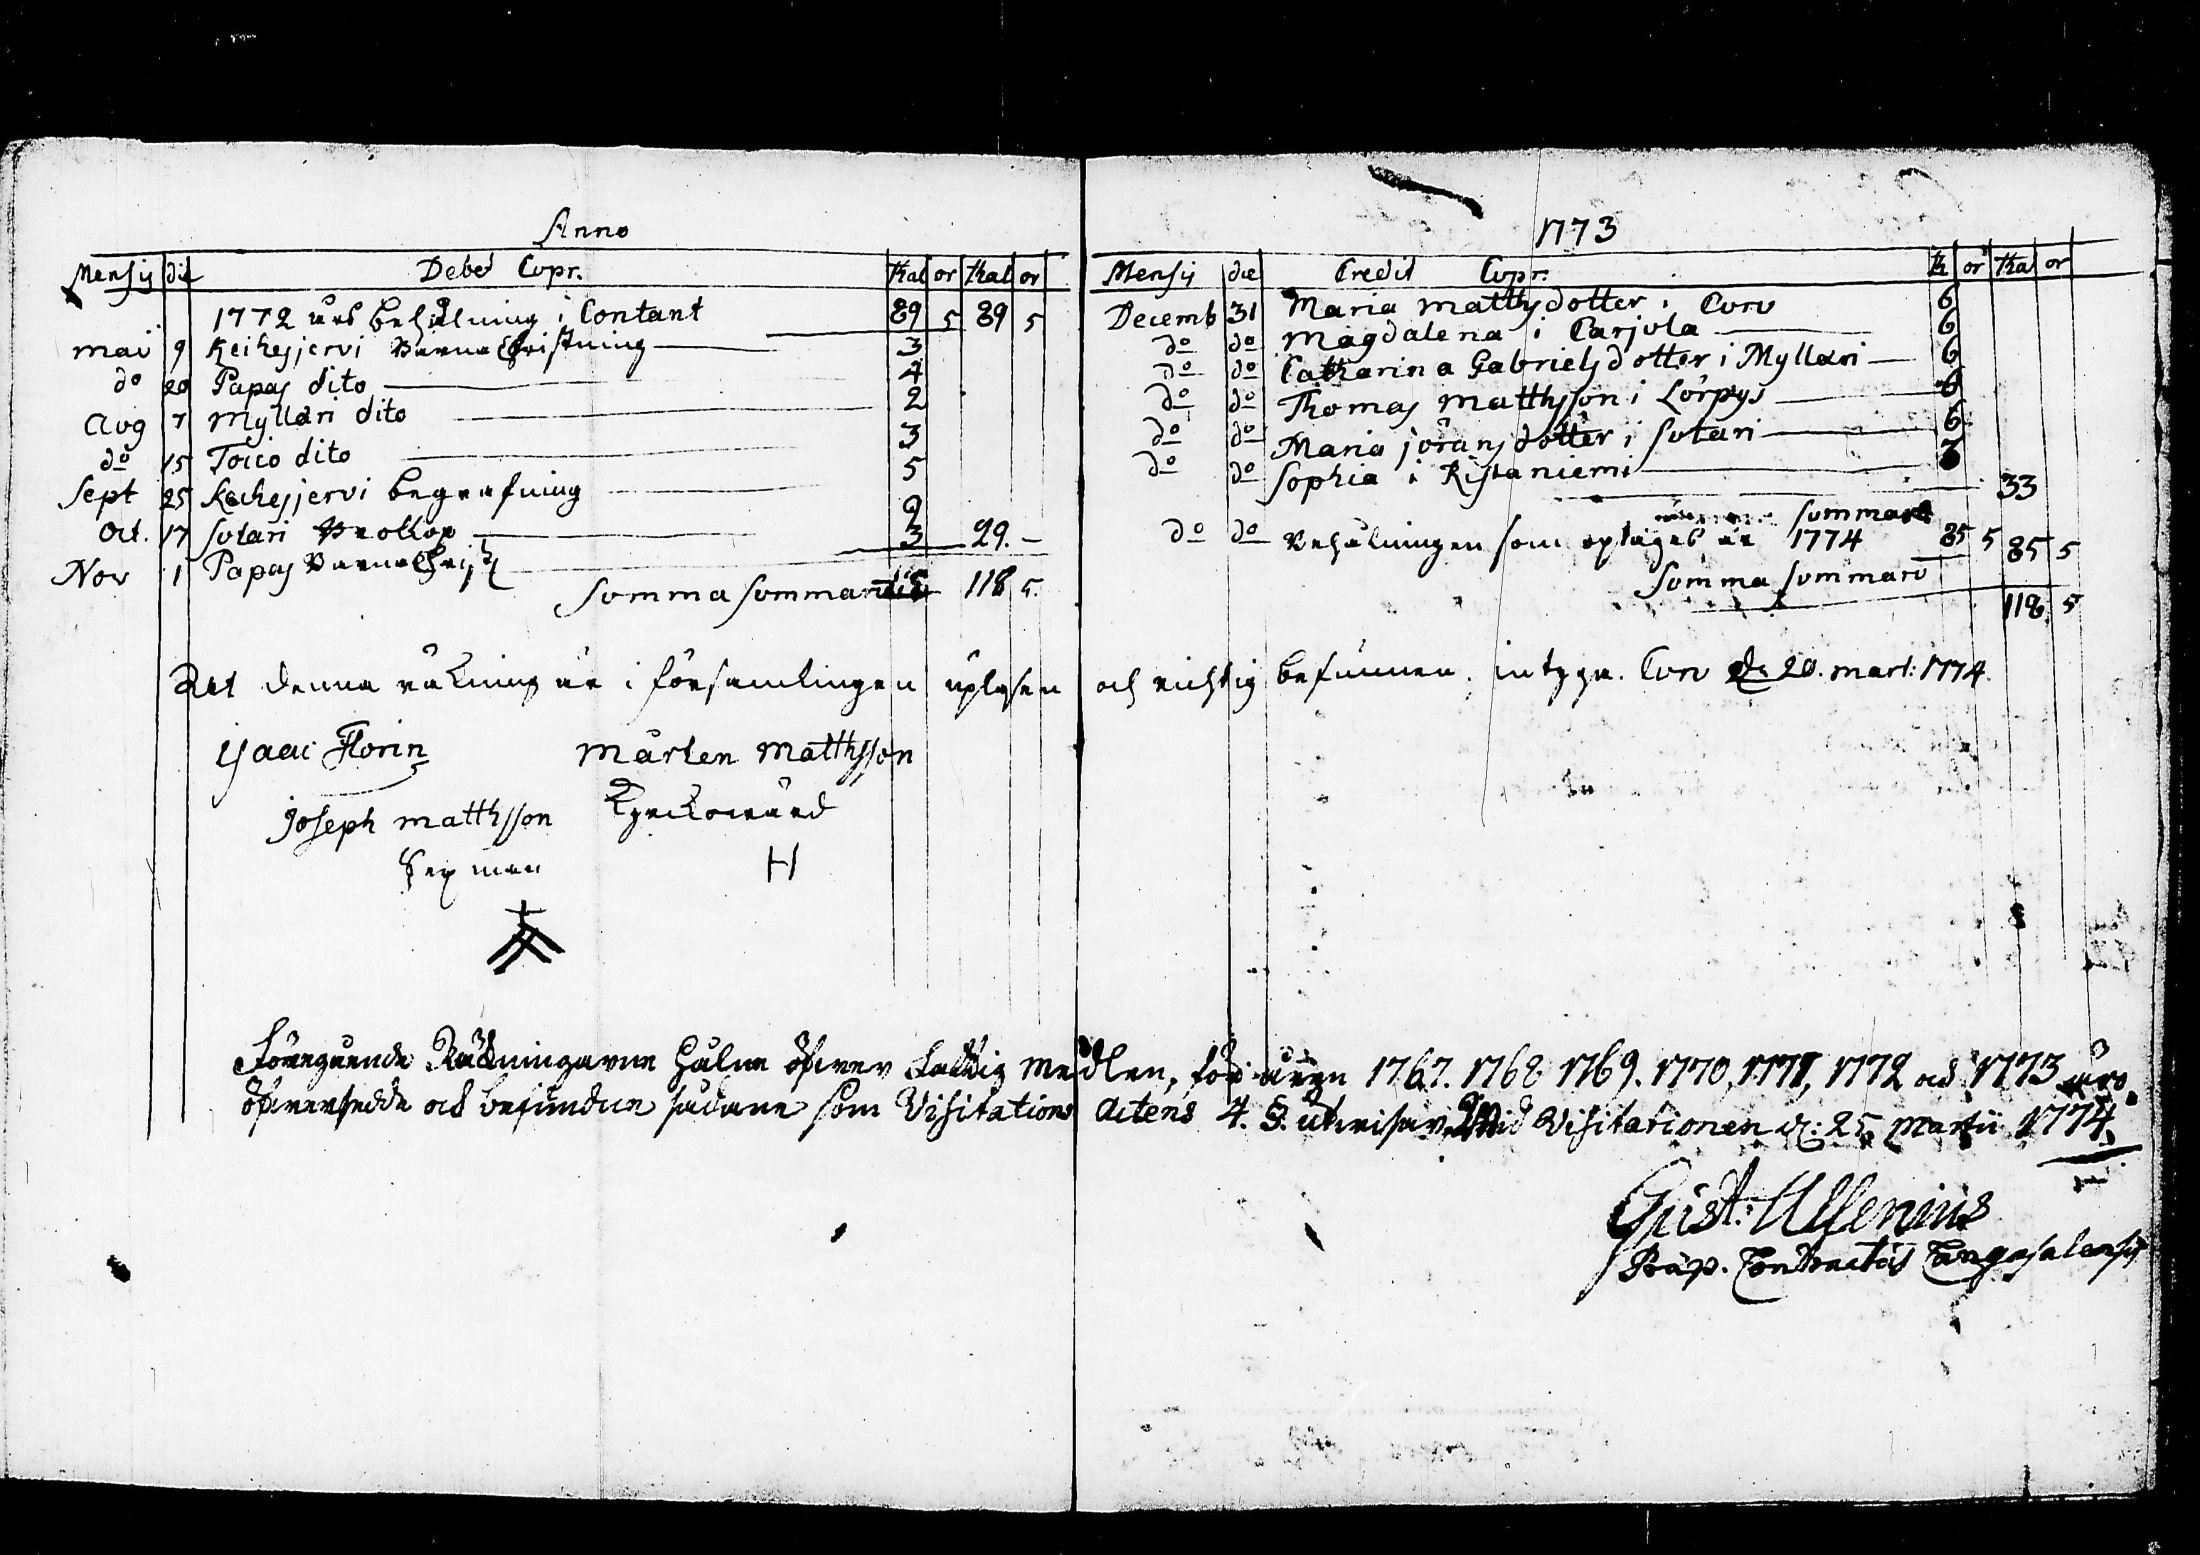 Anno
Mensij die Debet Cupr. thal or thal or
1772 års behålning i Contant 89 5 89 5
maii 9 Keihesjervi Barna Christning 3
do 20 Papas dito 4
Aug 7 Myllari dito 2
do 15 Toico dito 3
Sept 25 Keihesjervi begrafning 5
Oct. 17 Sutari Brollop 9
Nov 1 Papas Barna Christ 3 29. –
Summa Summarum 118 5.
1773
Mensij die Credit Cupr. th or tha or
Decemb 31 Maria Matthsdotter i Curu 6
do do Magdalena i Parjula 6
do do Catharina Gabrielsdotter i Myllari 6
do do Thomas Matthsson i Lörpys 6
do do Maria jöransdotter i Sutari 6
do do Sophia i Ristaniemi 3
33
Summa
do do Behålningen som optages år 1774 85 5 85 5
Summa Summaru
118. 5
Att denna räkning är i församlingen upläsen och richtig befunnen, intyga. Curu d. 20. mart: 1774.
Isaac Florin Mårten Matthsson
Joseph matthsson Kyrckowärd
Sexman H
Föregående Räkningarne hålne öfwer Fattig Medlen, för åren 1767. 1768 1769. 1770, 1771, 1772 och 1773 äro
öfwersedde och befundne sådane som Visitations Actens 4. §. utwisar. Wid Visitationen d: 25 Martii 1774.
Gust: Allenius
Præp. Contractus Cangasalensis